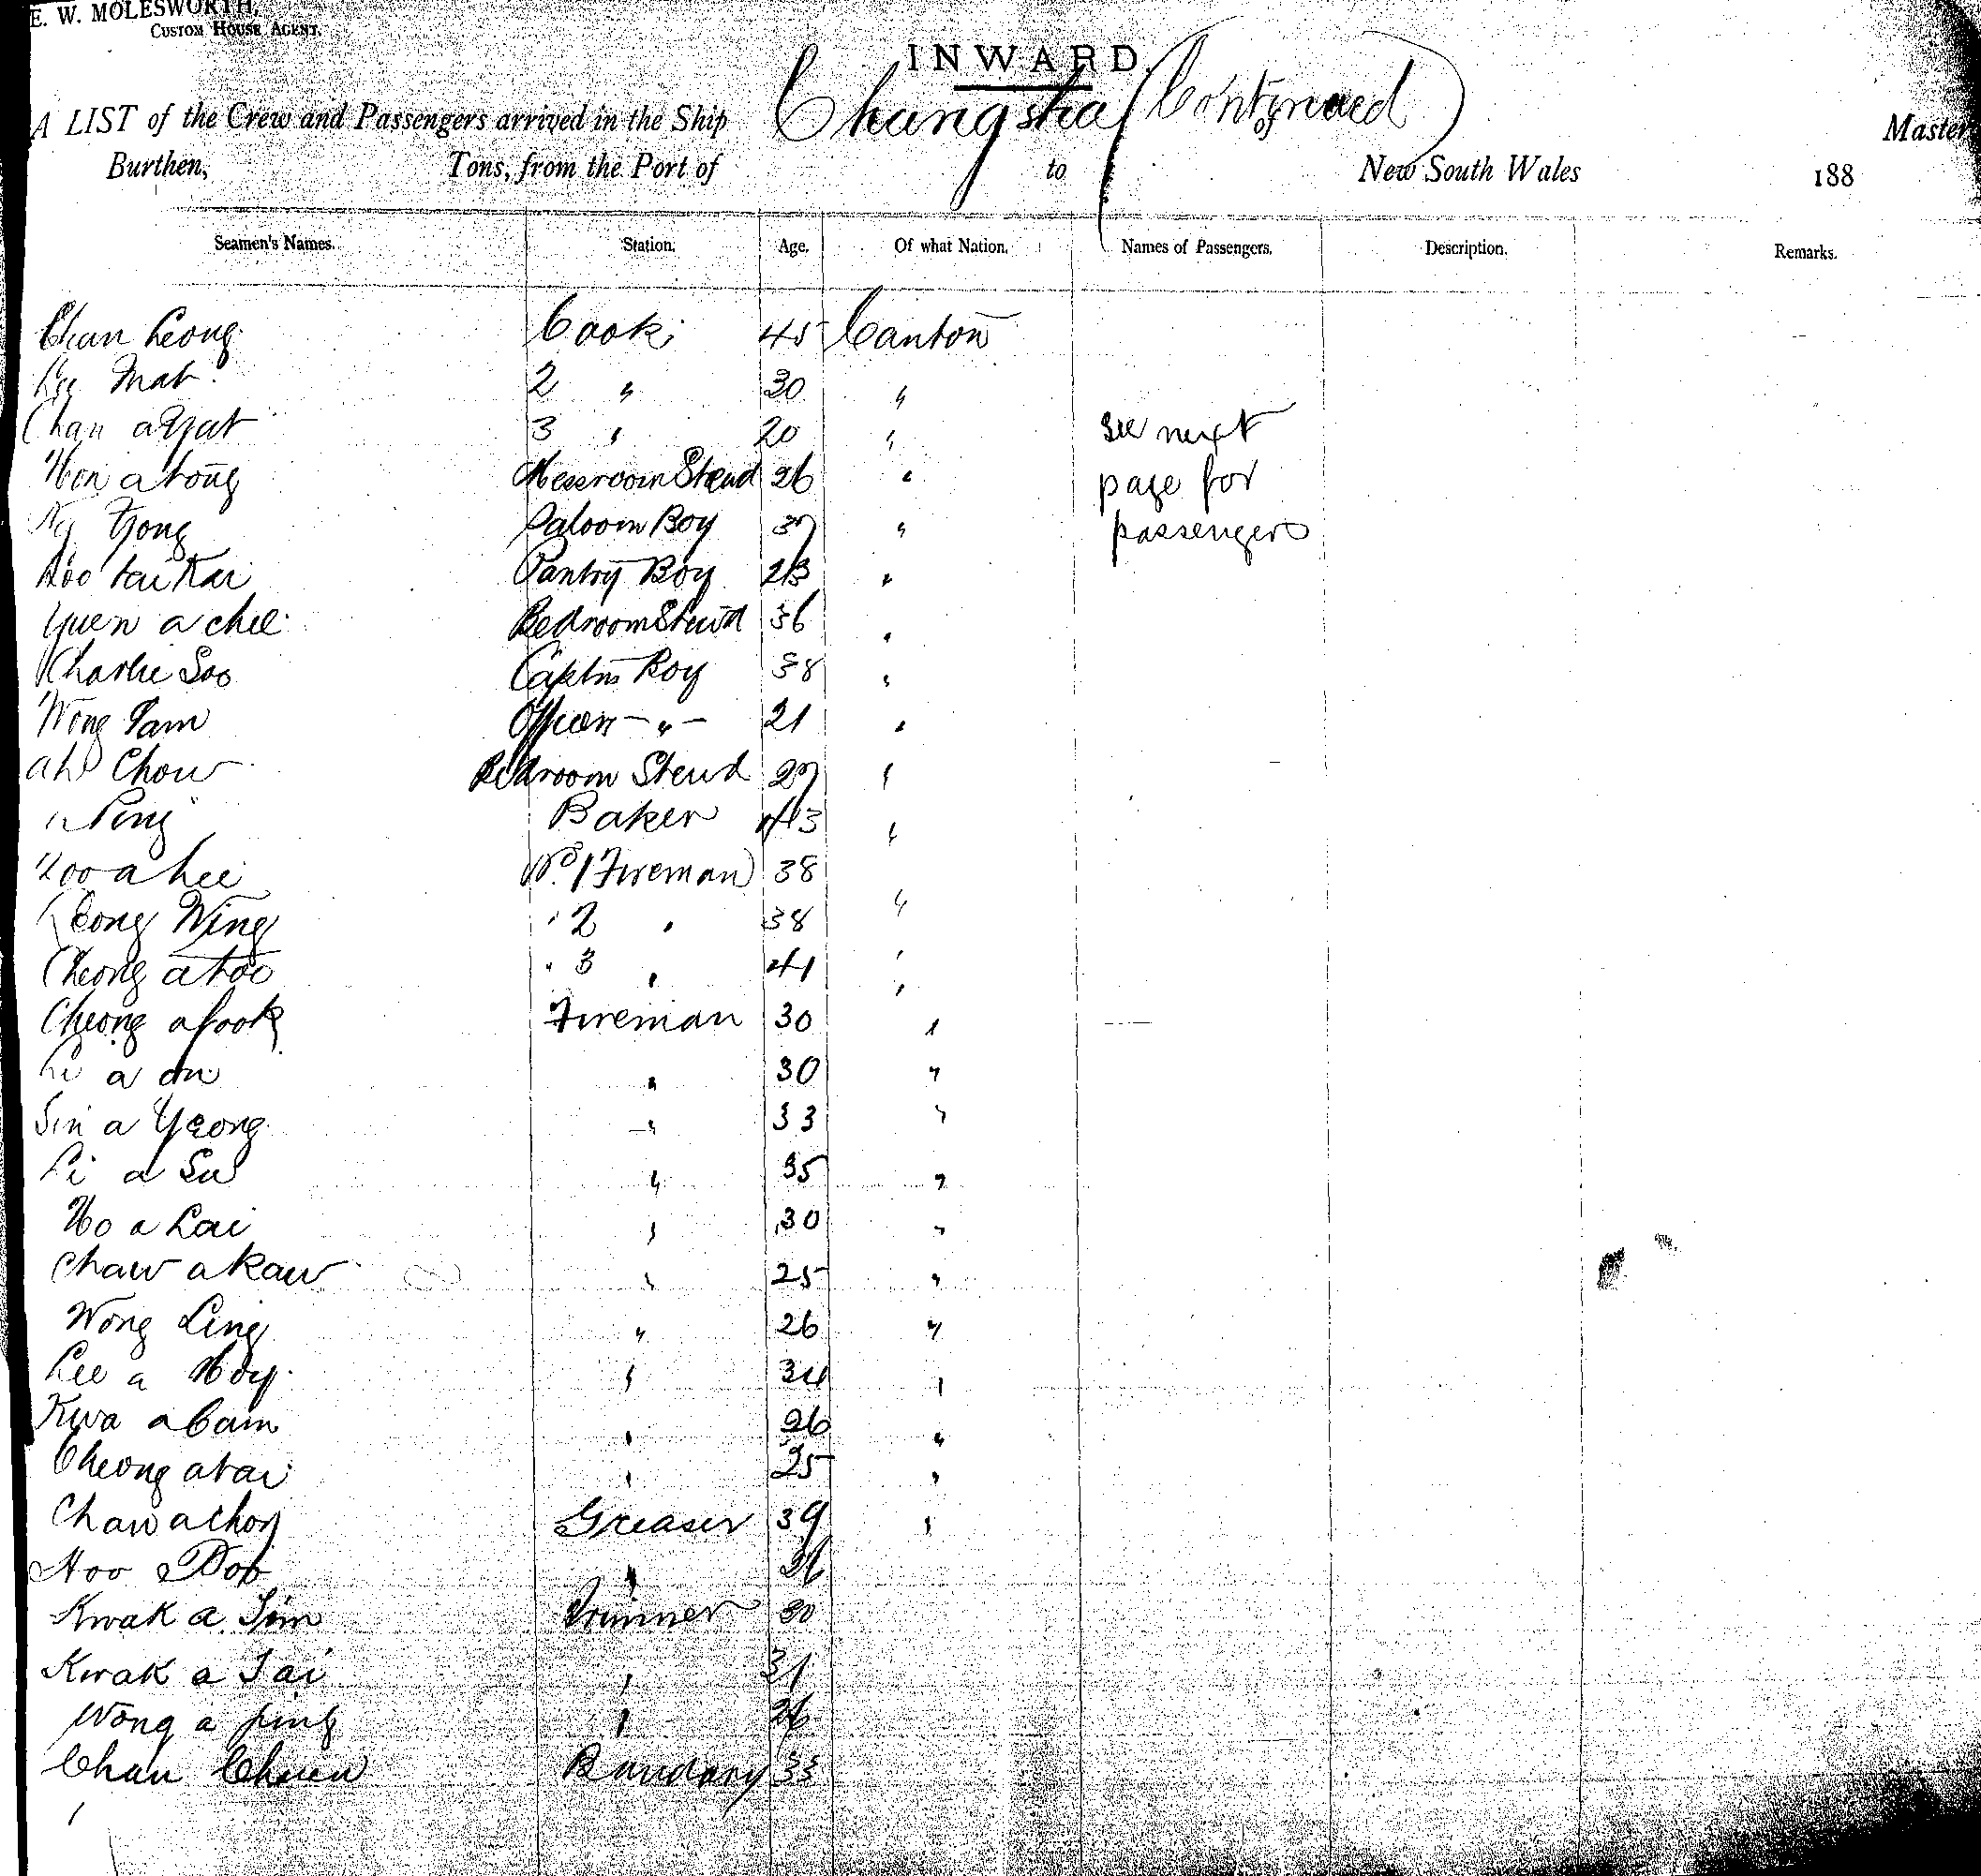 E. W. MOLESWORTH,
CUSTOM HOUSE AGENT.
INWARD
A LIST of the Crew and Passengers arrived in the Ship Changsha (Continued) of Master
Burthen, Tons, from the Port of to New South Wales 188
Seamen's Names. Station. Age. Of what Nation. Names of Passengers. Description. Remarks.
Chan Leong Cook 45 Canton
Mat 2 " 30 "
Chan a Yat 3 " 20 "
see next
Hon a tong Messroom Steud 26 "
page for
Ng Saloom Boy 37 "
passengers
Pantry Boy 23 "
Yuen a chee Bedroom Steud 36 "
Charlie Soo Captns Boy 38 "
Wong Officers - " - 21 "
ah Chow Bedroom Steud 27 "
" Baker 43 "
No. 1 Fireman 38
Leong Wing " 2 " 38 "
Cheong a " 3 " 41 "
Cheong a fook Fireman 30 "
Li a on " 30 "
Sin a Yeong " 33 "
Li a " 35 "
Ho a Lai " 30 "
Chaw a Kaw " 25 "
Wong Ling " 26 "
Lee a Hoy " 34 "
Kwa a Cam " 26 "
Cheong a tai " 25 "
Chaw a choy Greaser 39 "
"
Kwak a Sim Trimmer 30
Kwak a Tai " 31
Wong a ping " 26
Chan Bandary 33